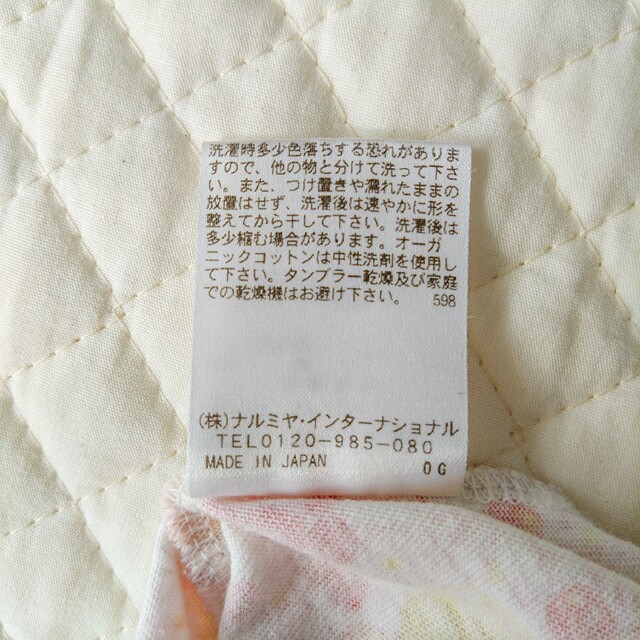 洗濯時多少色落ちする恐れがありま
すので、他の物と分けて洗って下さ
い。また、つけ置きや濡れたままの
放置はせず、洗濯後は速やかに形を
整えてから干して下さい。洗濯後は
多少縮む場合があります。オーガ
ニックコットンは中性洗剤を使用し
て下さい。タンブラー乾燥及び家庭
での乾燥機はお避け下さい。 598
(株)ナルミヤ・インターナショナル
TEL0120-985-080
MADE IN JAPAN 0G